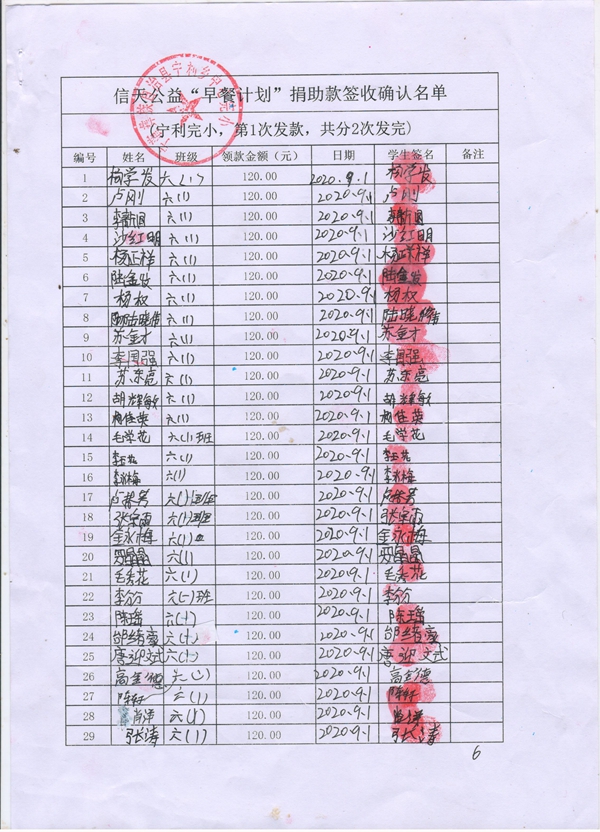 信天公益“早餐计划”捐助款签收确认名单
(宁利完小，第1次发款，共分2次发完)
编号 姓名 班级 领款金额（元） 日期 学生签名 备注
1 杨学发 六(1) 120.00 2020.9.1 杨学发
2 卢刚 六(1) 120.00 2020.9.1 卢刚
3 李新国 六(1) 120.00 2020.9.1 李新国
4 沙红明 六(1) 120.00 2020.9.1 沙红明
5 杨正祥 六(1) 120.00 2020.9.1 杨正祥
6 陆金发 六(1) 120.00 2020.9.1 陆金发
7 杨权 六(1) 120.00 2020.9.1 杨权
8 六(1) 120.00 2020.9.1
9 苏金才 六(1) 120.00 2020.9.1 苏金才
10 李国强 六(1) 120.00 2020.9.1 李国强
11 苏东亮 六(1) 120.00 2020.9.1 苏东亮
12 胡耀敏 六(1) 120.00 2020.9.1 胡耀敏
13 杨佳英 六(1) 120.00 2020.9.1 杨佳英
14 毛学花 六(1)班 120.00 2020.9.1 毛学花
15 李玉花 六(1) 120.00 2020.9.1 李玉花
16 李永梅 六(1) 120.00 2020.9.1 李永梅
17 六(1)班 120.00 2020.9.1
18 六(1)班 120.00 2020.9.1
19 金永梅 六(1) 120.00 2020.9.1 金永梅
20 六(1) 120.00 2020.9.1
21 毛秀花 六(1) 120.00 2020.9.1 毛秀花
22 李竹 六(一)班 120.00 2020.9.1 李竹
23 陈瑶 六(1) 120.00 2020.9.1 陈瑶
24 邰绪豪 六(1) 120.00 2020.9.1 邰绪豪
25 唐迎文武 六(1) 120.00 2020.9.1 唐迎文武
26 高金德 六(1) 120.00 2020.9.1 高金德
27 六(1) 120.00 2020.9.1
28 肖洋 六(1) 120.00 2020.9.1 肖洋
29 张涛 六(1) 120.00 2020.9.1 张涛
6